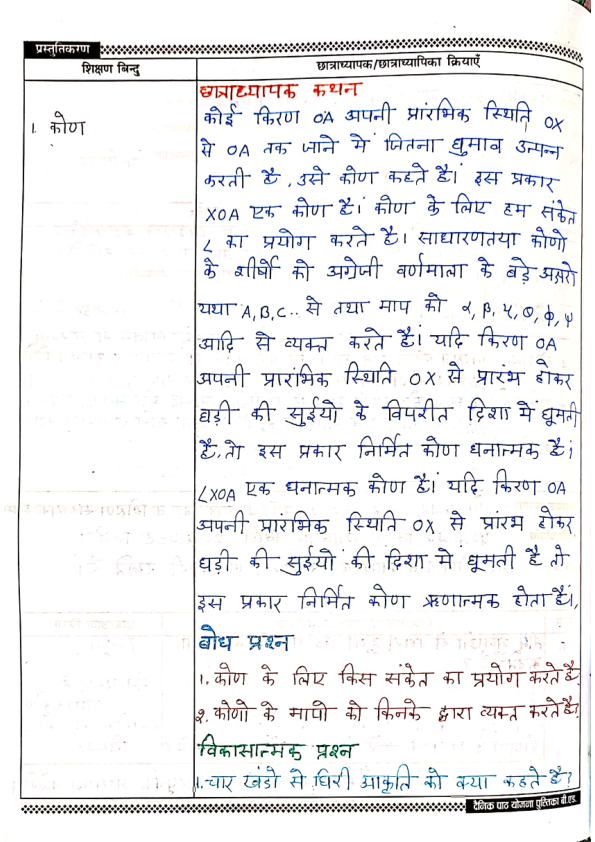 प्रस्तुतिकरण
शिक्षण बिन्दु
छात्राध्यापक/छात्राध्यापिका क्रियाएँ
1. कोण
छात्राध्यापक कथन
कोई किरण OA अपनी प्रारंभिक स्थिति OX
से OA तक जाने में जितना घुमाव उत्पन्न
करती है, उसे कोण कहते है। इस प्रकार
XOA एक कोण है। कोण के लिए हम संकेत
∠ का प्रयोग करते है। साधारणतया कोणो
के शीर्षो को अग्रेजी वर्णमाला के बड़े अक्षरो
यथा A, B, C.. से तथा माप को α, β, γ, θ, ϕ, ψ
आदि से व्यक्त करते है। यदि किरण OA
अपनी प्रारंभिक स्थिति OX से प्रारंभ होकर
घड़ी की सुईयो के विपरीत दिशा में घूमती
है, तो इस प्रकार निर्मित कोण धनात्मक है।
∠XOA एक धनात्मक कोण है। यदि किरण OA
अपनी प्रारंभिक स्थिति OX से प्रांरभ होकर
घड़ी की सुईयों की दिशा मे घूमती है तो
इस प्रकार निर्मित कोण ऋणात्मक होता है।,
बोध प्रश्न
1. कोण के लिए किस संकेत का प्रयोग करते है?
2. कोणो के मापो को किनके द्वारा व्यक्त करते है?
विकासात्मक प्रश्न
1. चार खंडो से घिरी आकृति को क्या कहते है?
दैनिक पाठ योजना पुस्तिका बी.एड.